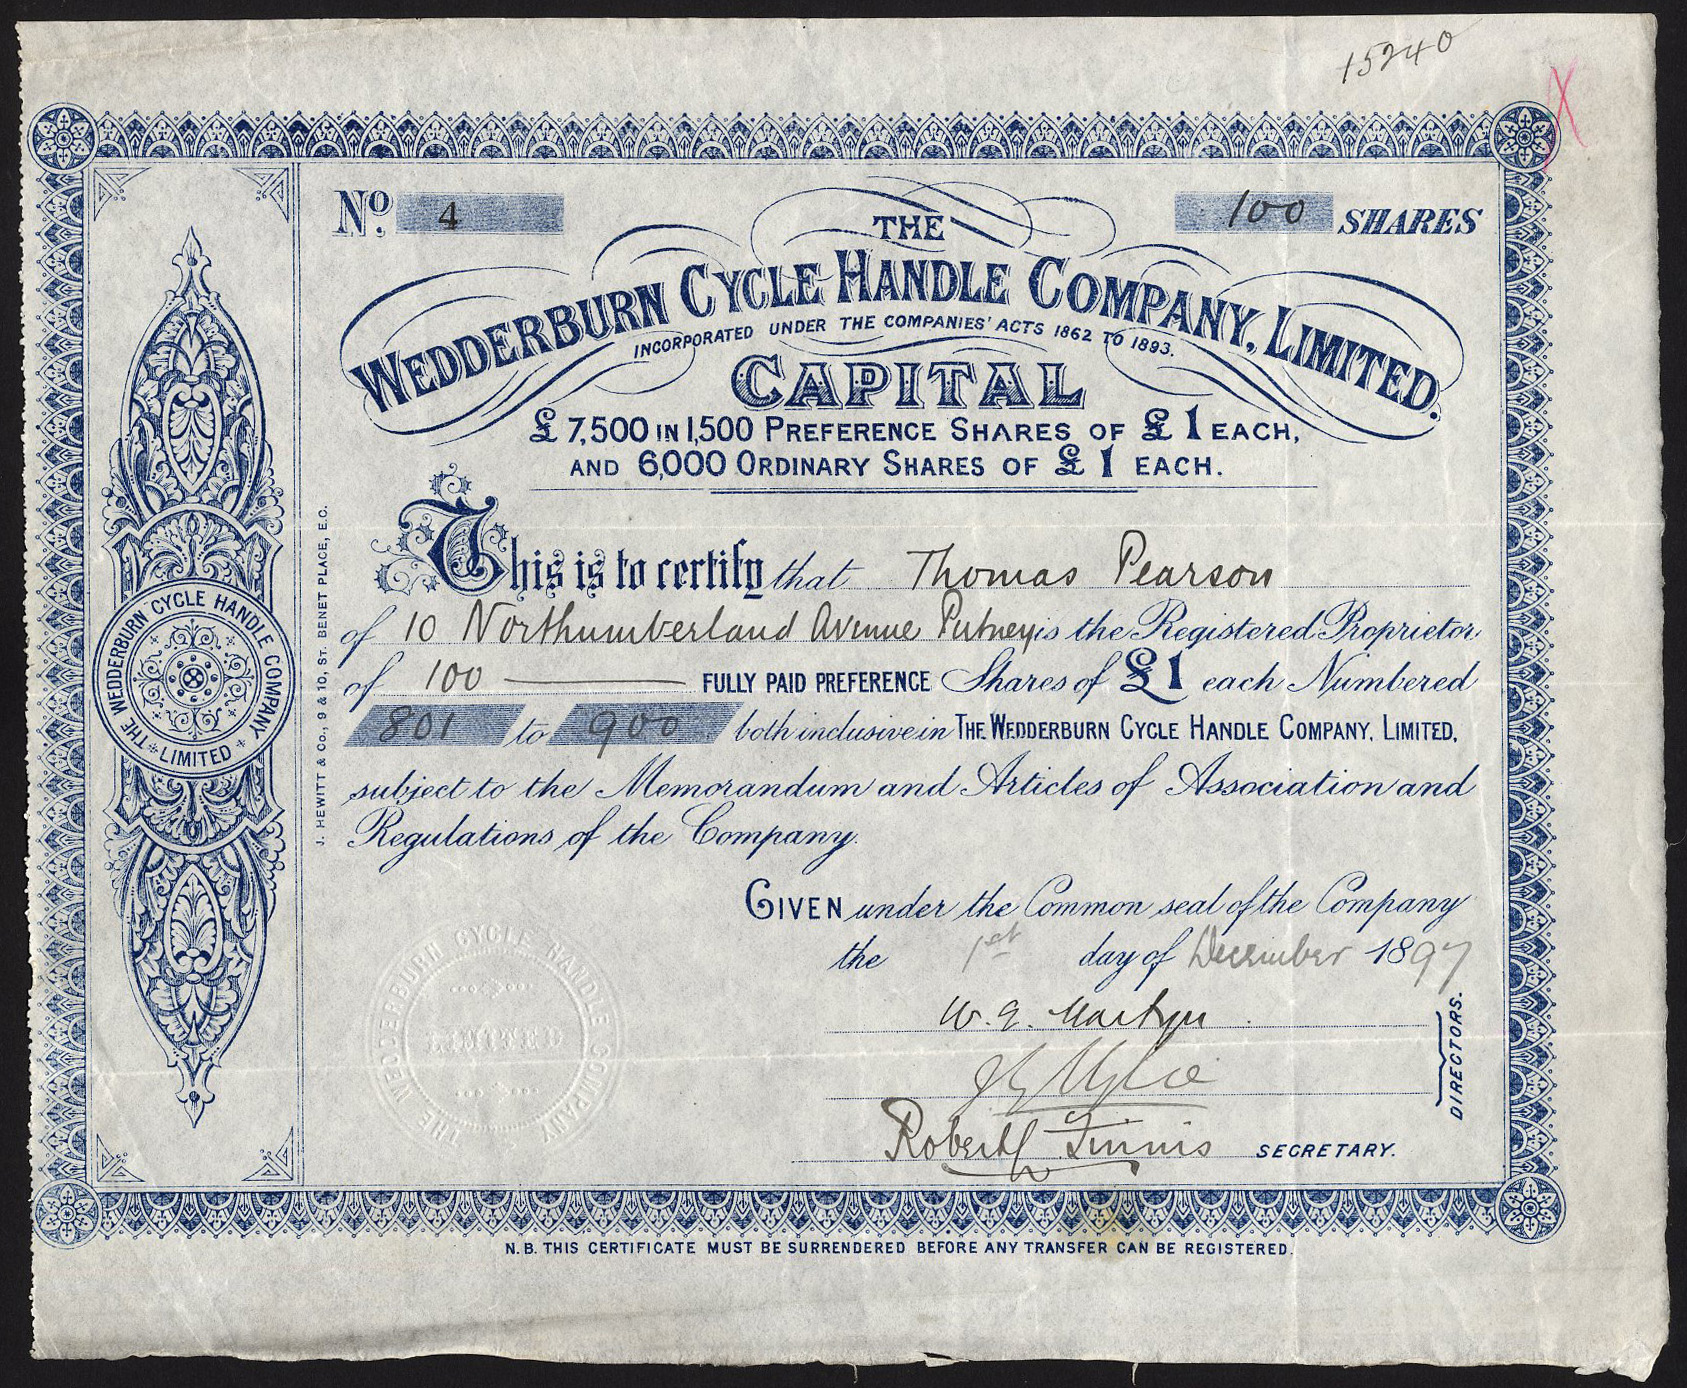 15240
X
No. 4
100 SHARES
THE
WEDDERBURN CYCLE HANDLE COMPANY, LIMITED.
INCORPORATED UNDER THE COMPANIES' ACTS 1862 TO 1893.
CAPITAL
£7,500 IN 1,500 PREFERENCE SHARES OF £1 EACH,
AND 6,000 ORDINARY SHARES OF £1 EACH.
This is to certify that Thomas Pearson
of 10 Northumberland Avenue Putney is the Registered Proprietor
of 100 FULLY PAID PREFERENCE Shares of £1 each Numbered
801 to 900 both inclusive in THE WEDDERBURN CYCLE HANDLE COMPANY, LIMITED,
subject to the Memorandum and Articles of Association and
Regulations of the Company.
GIVEN under the Common seal of the Company
the 1st day of December 1897
DIRECTORS.
Robert Finnis SECRETARY.
THE WEDDERBURN CYCLE HANDLE COMPANY
LIMITED
J. HEWITT & CO., 9 & 10, ST. BENET PLACE, E.C.
THE WEDDERBURN CYCLE HANDLE COMPANY
LIMITED
N.B. THIS CERTIFICATE MUST BE SURRENDERED BEFORE ANY TRANSFER CAN BE REGISTERED.